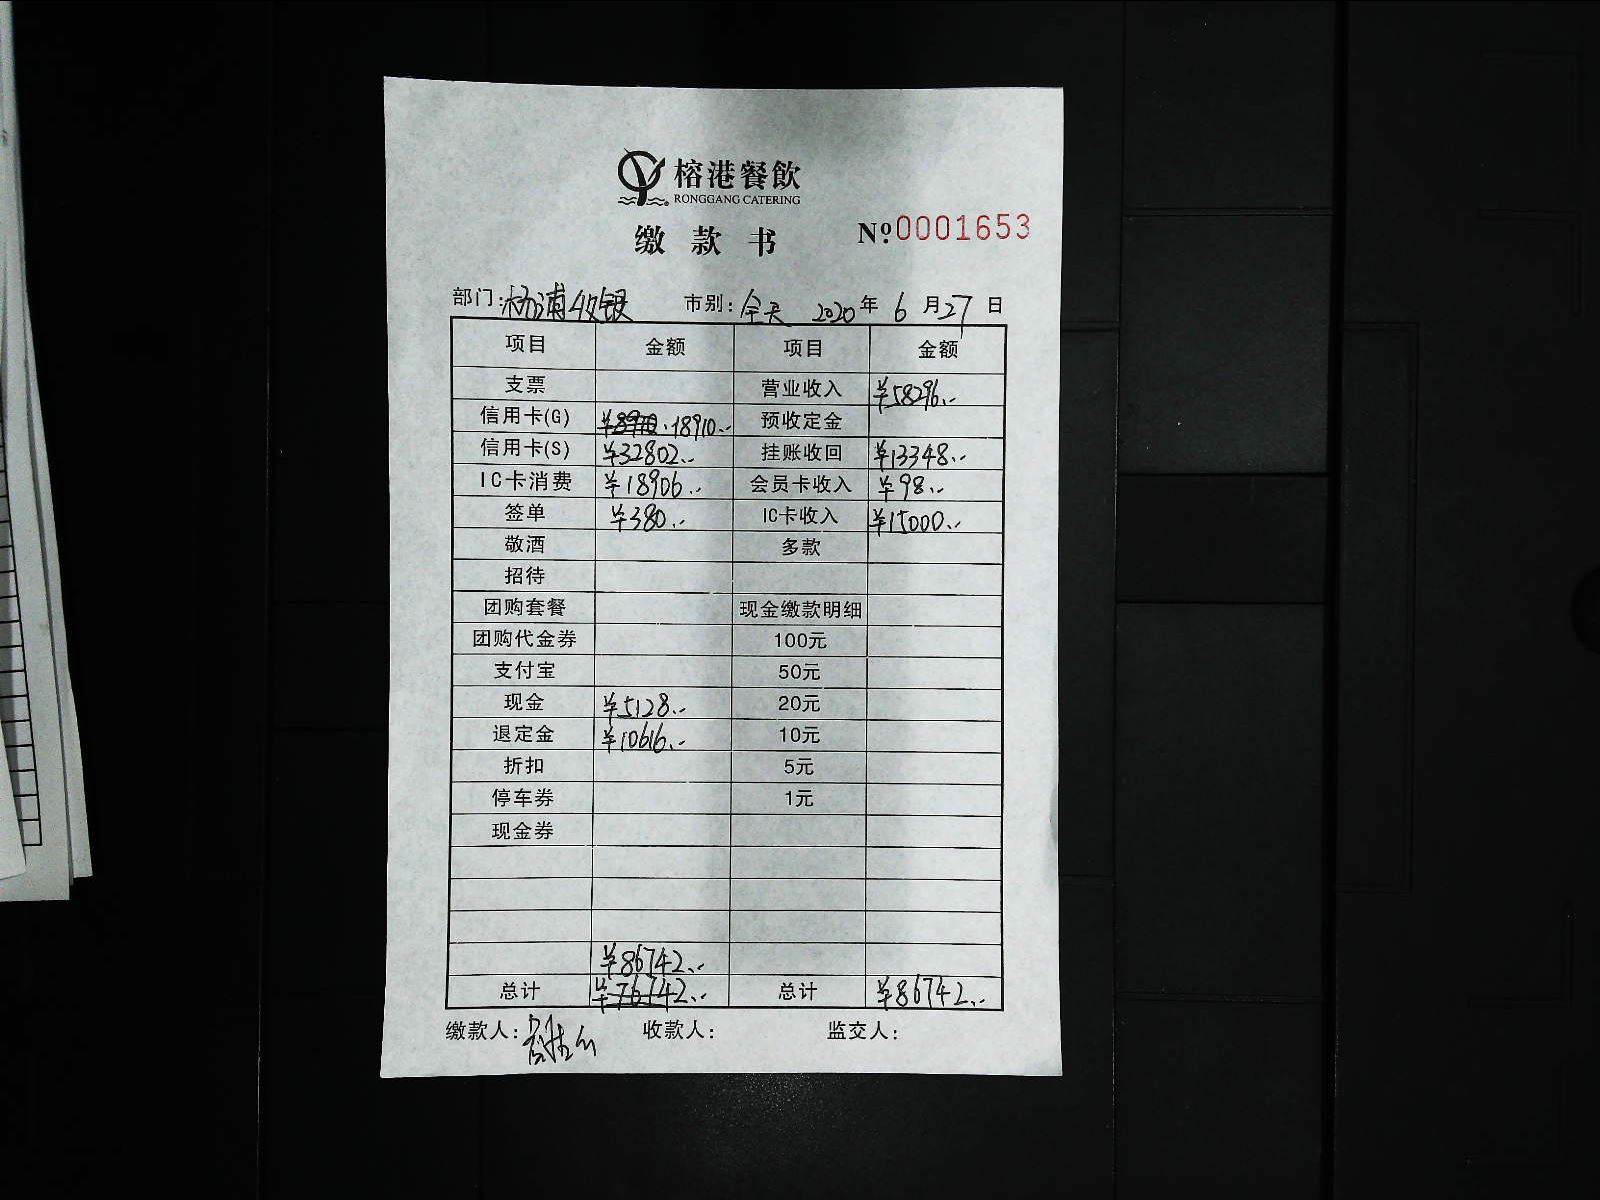 榕港餐飲
RONGGANG CATERING
缴款书 №0001653
部门:杨浦收银 市别:全天 2020年6月27日
项目 金额 项目 金额
支票 营业收入 ¥58296.--
信用卡(G) ¥8910.18910.-- 预收定金
信用卡(S) ¥32802.-- 挂账收回 ¥13348.--
IC卡消费 ¥18906.-- 会员卡收入 ¥98.--
签单 ¥380.-- IC卡收入 ¥15000.--
敬酒 多款
招待
团购套餐 现金缴款明细
团购代金券 100元
支付宝 50元
现金 ¥5128.-- 20元
退定金 ¥10616.-- 10元
折扣 5元
停车券 1元
现金券
¥86742.--
总计 ¥76742.-- 总计 ¥86742.--
缴款人: 收款人: 监交人: